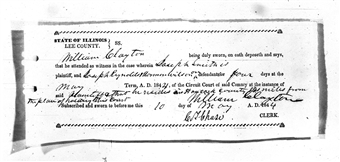 STATE OF ILLINOIS } SS.
LEE COUNTY.
William Clayton being duly sworn, on oath deposeth and says,
that he attended as witness in the case wherein Joseph Smith is
plaintiff, and Joseph Reynolds & Harmon Wilson, Defendants four days at the
May Term, A. D. 1844, of the Circuit Court of said County at the instance of
said plaintiff & that he resides in Hancock County miles from
the place of holding this Court
William Clayton
Subscribed and sworn to before me this 10 day of May A. D. 1844
Chase CLERK.